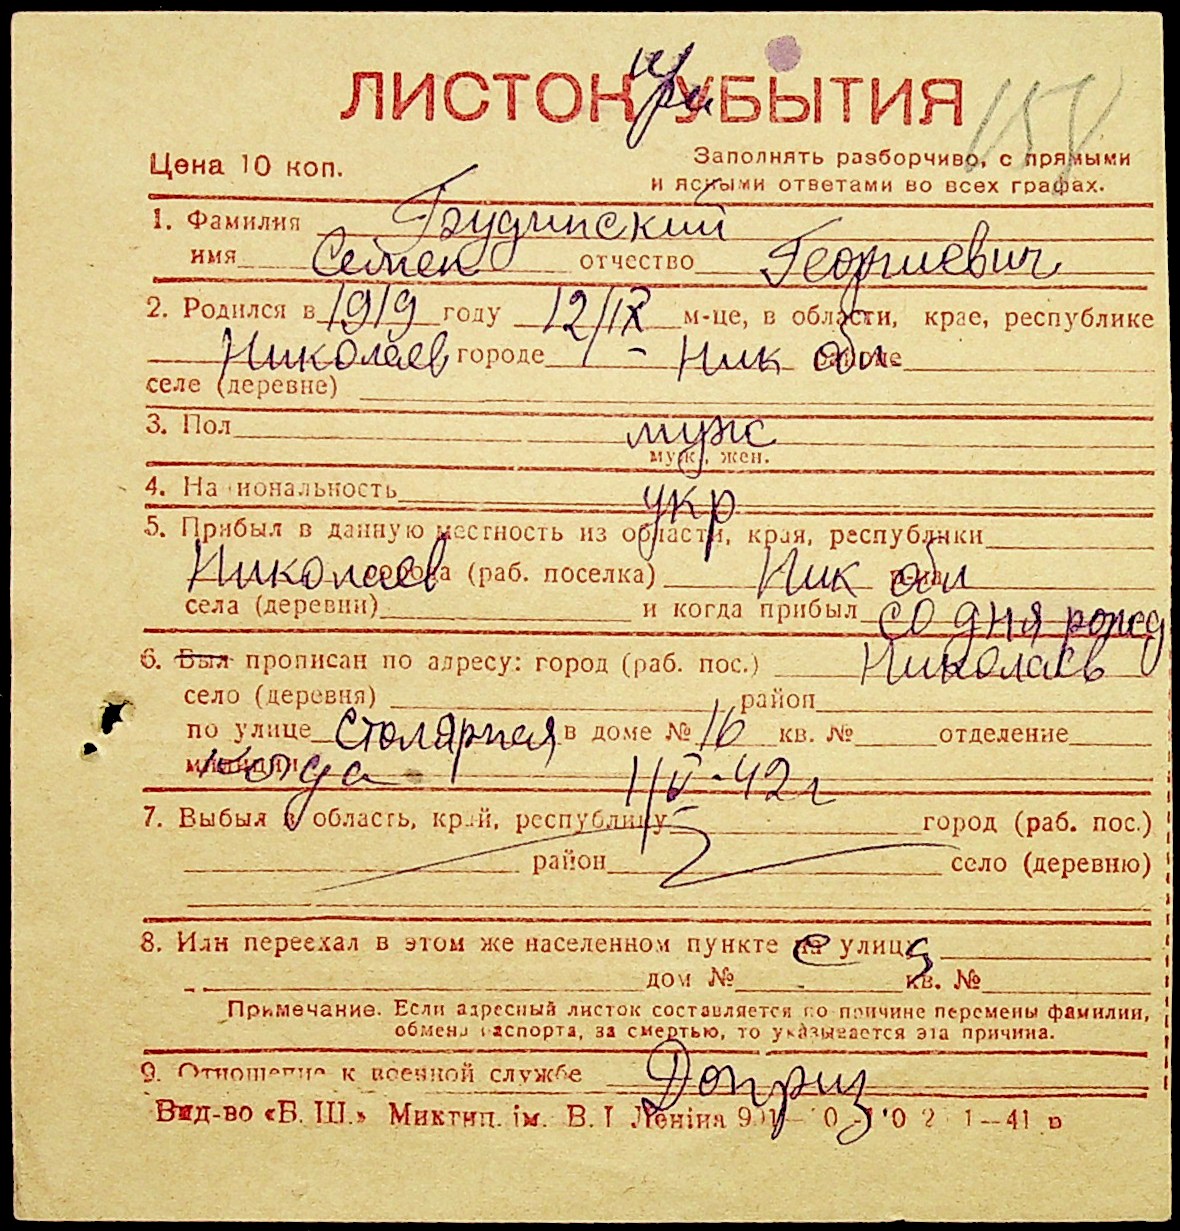 ЛИСТОК УБЫТИЯ
при
158
Цена 10 коп.
Заполнять разборчиво, с прямыми
и ясными ответами во всех графах.
1. Фамилия Грудинский
имя Семен отчество Георгиевич
2. Родился в 1919 году 12/IX м-це, в области, крае, республике
Николаев городе - Ник обл районе
селе (деревне)
3. Пол муж
муж., жен.
4. Национальность укр
5. Прибыл в данную местность из области, края, республики
Николаев города (раб. поселка) Ник обл р-на
села (деревни) и когда прибыл со дня рожд
6. Был прописан по адресу: город (раб. пос.) Николаев
село (деревня) район
по улице Столярная в доме № 16 кв. № отделение
милиции когда 1/V-42 г
7. Выбыл в область, край, республику город (раб. пос.)
район село (деревню)
8. Или переехал в этом же населенном пункте на улицу
дом № кв. №
Примечание. Если адресный листок составляется по причине перемены фамилии,
обмена паспорта, за смертью, то указывается эта причина.
9. Отношение к военной службе Доприз
Вид-во «Б. Ш.» Миктип. ім. В. І Леніна